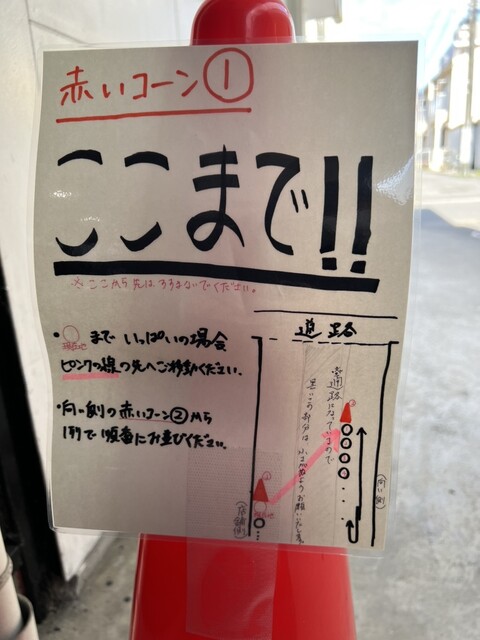 赤いコーン①
ここまで!!
※ここから先はすすまないでください。
・①まで いっぱいの場合
現在地
ピンクの線の先へご移動ください。
・向い側の赤いコーン②から
1列で順番にお並びください。
道路
②
通路になっているので
(向い側)
①
現在地
(店舗側)